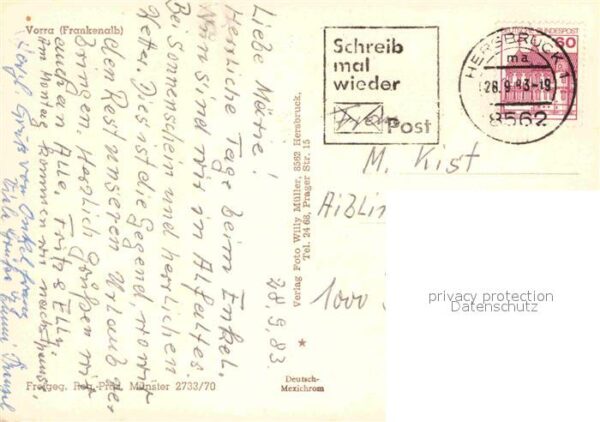 Vorra (Frankenalb)
Liebe Märte!
Herrliche Tage beim Enkel.
Nun sind wir in Alfaltes.
Bei Sonnenschein und herrlichen
Wetter. Dies ist die Gegend wo wir
den Rest unseren Urlaub ver
bringen. Herzlich Grüßen wir
euch an Alle. Fritz & Elly.
Am Montag kommen wir nach Hause.
Gruß von Onkel
Viele Grüße
28.9.83.
Freigeg. Reg.-Präs. Münster 2733/70
Verlag Foto Willy Müller, 8562 Hersbruck,
Tel. 24 68, Prager Str. 15
Deutsch-
Mexichrom
Schreib
mal
wieder
Post
HERSBRUCK 1
ma
28.9.83-19
8562
BUNDESPOST
60
M. Kist
Aiblin
1000
privacy protection
Datenschutz